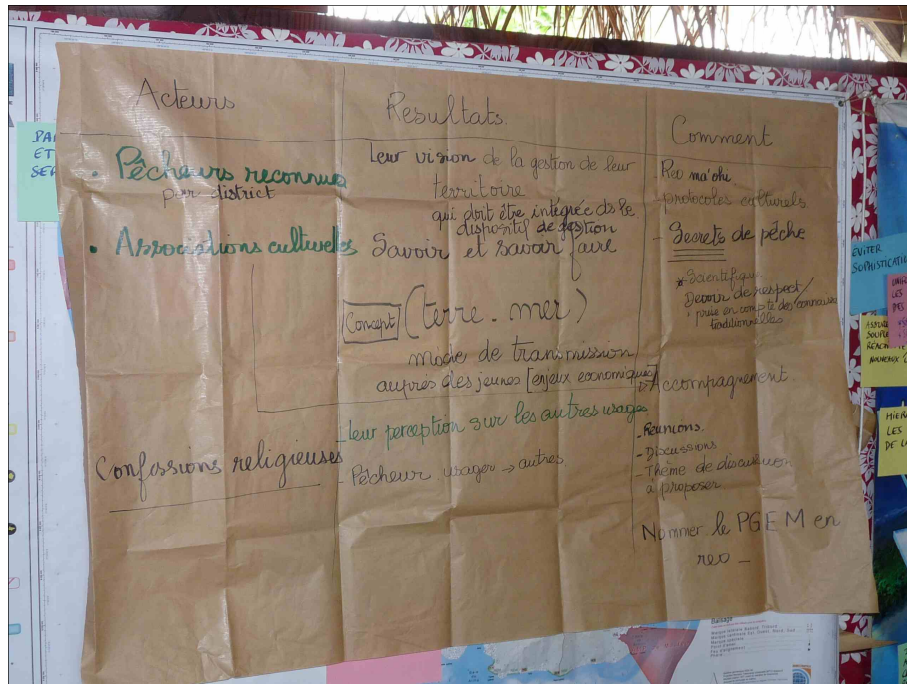 Acteurs
• Pêcheurs reconnus
par district
• Associations culturelles
Confessions religieuses
Resultats.
Leur vision de la gestion de leur
territoire
qui doit être intégrée ds le
dispositif de gestion
Savoir et savoir faire
Concept (terre - mer)
mode de transmission
auprès des jeunes [enjeux economiques]
- Leur perception sur les autres usages
- Pêcheur usager → autres
Comment
Reo ma'ohi
- protocoles culturels.
- Secrets de pêche
* Scientifique
Devoir de respect /
prise en compte des
traditionnelles
Accompagnement.
- Réunions.
- Discussions
- Thème de discussion
à proposer
Nommer le PGEM en
reo -
ET
EVITER
LES
HIER
LES
DE
Balisage